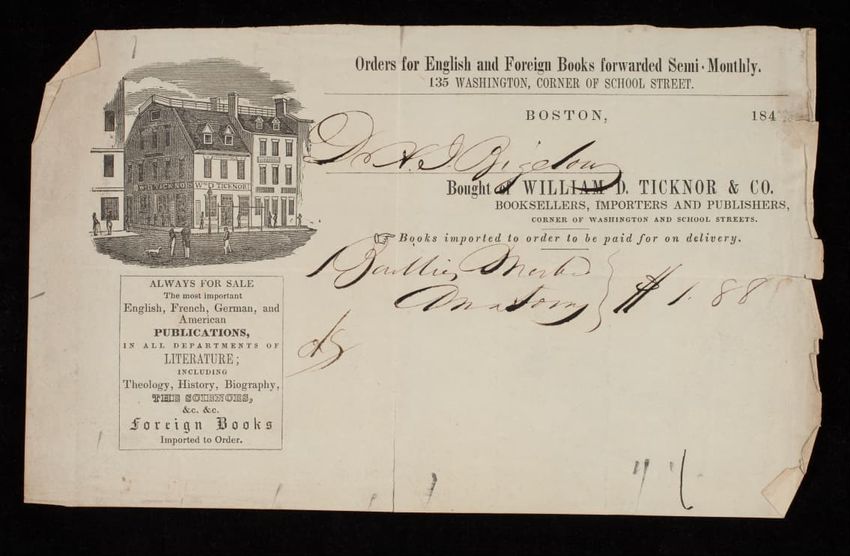 Orders for English and Foreign Books forwarded Semi-Monthly.
135 WASHINGTON, CORNER OF SCHOOL STREET.
BOSTON, 184
Dr H. J Bigelow
Bought of WILLIAM D. TICKNOR & CO.
BOOKSELLERS, IMPORTERS AND PUBLISHERS,
CORNER OF WASHINGTON AND SCHOOL STREETS.
☞ Books imported to order to be paid for on delivery.
1 Morbid
Anatomy } $1.88
W.D. TICKNOR Wm D. TICKNOR
ALWAYS FOR SALE
The most important
English, French, German, and
American
PUBLICATIONS,
IN ALL DEPARTMENTS OF
LITERATURE;
INCLUDING
Theology, History, Biography,
THE SCIENCES,
&c. &c.
Foreign Books
Imported to Order.